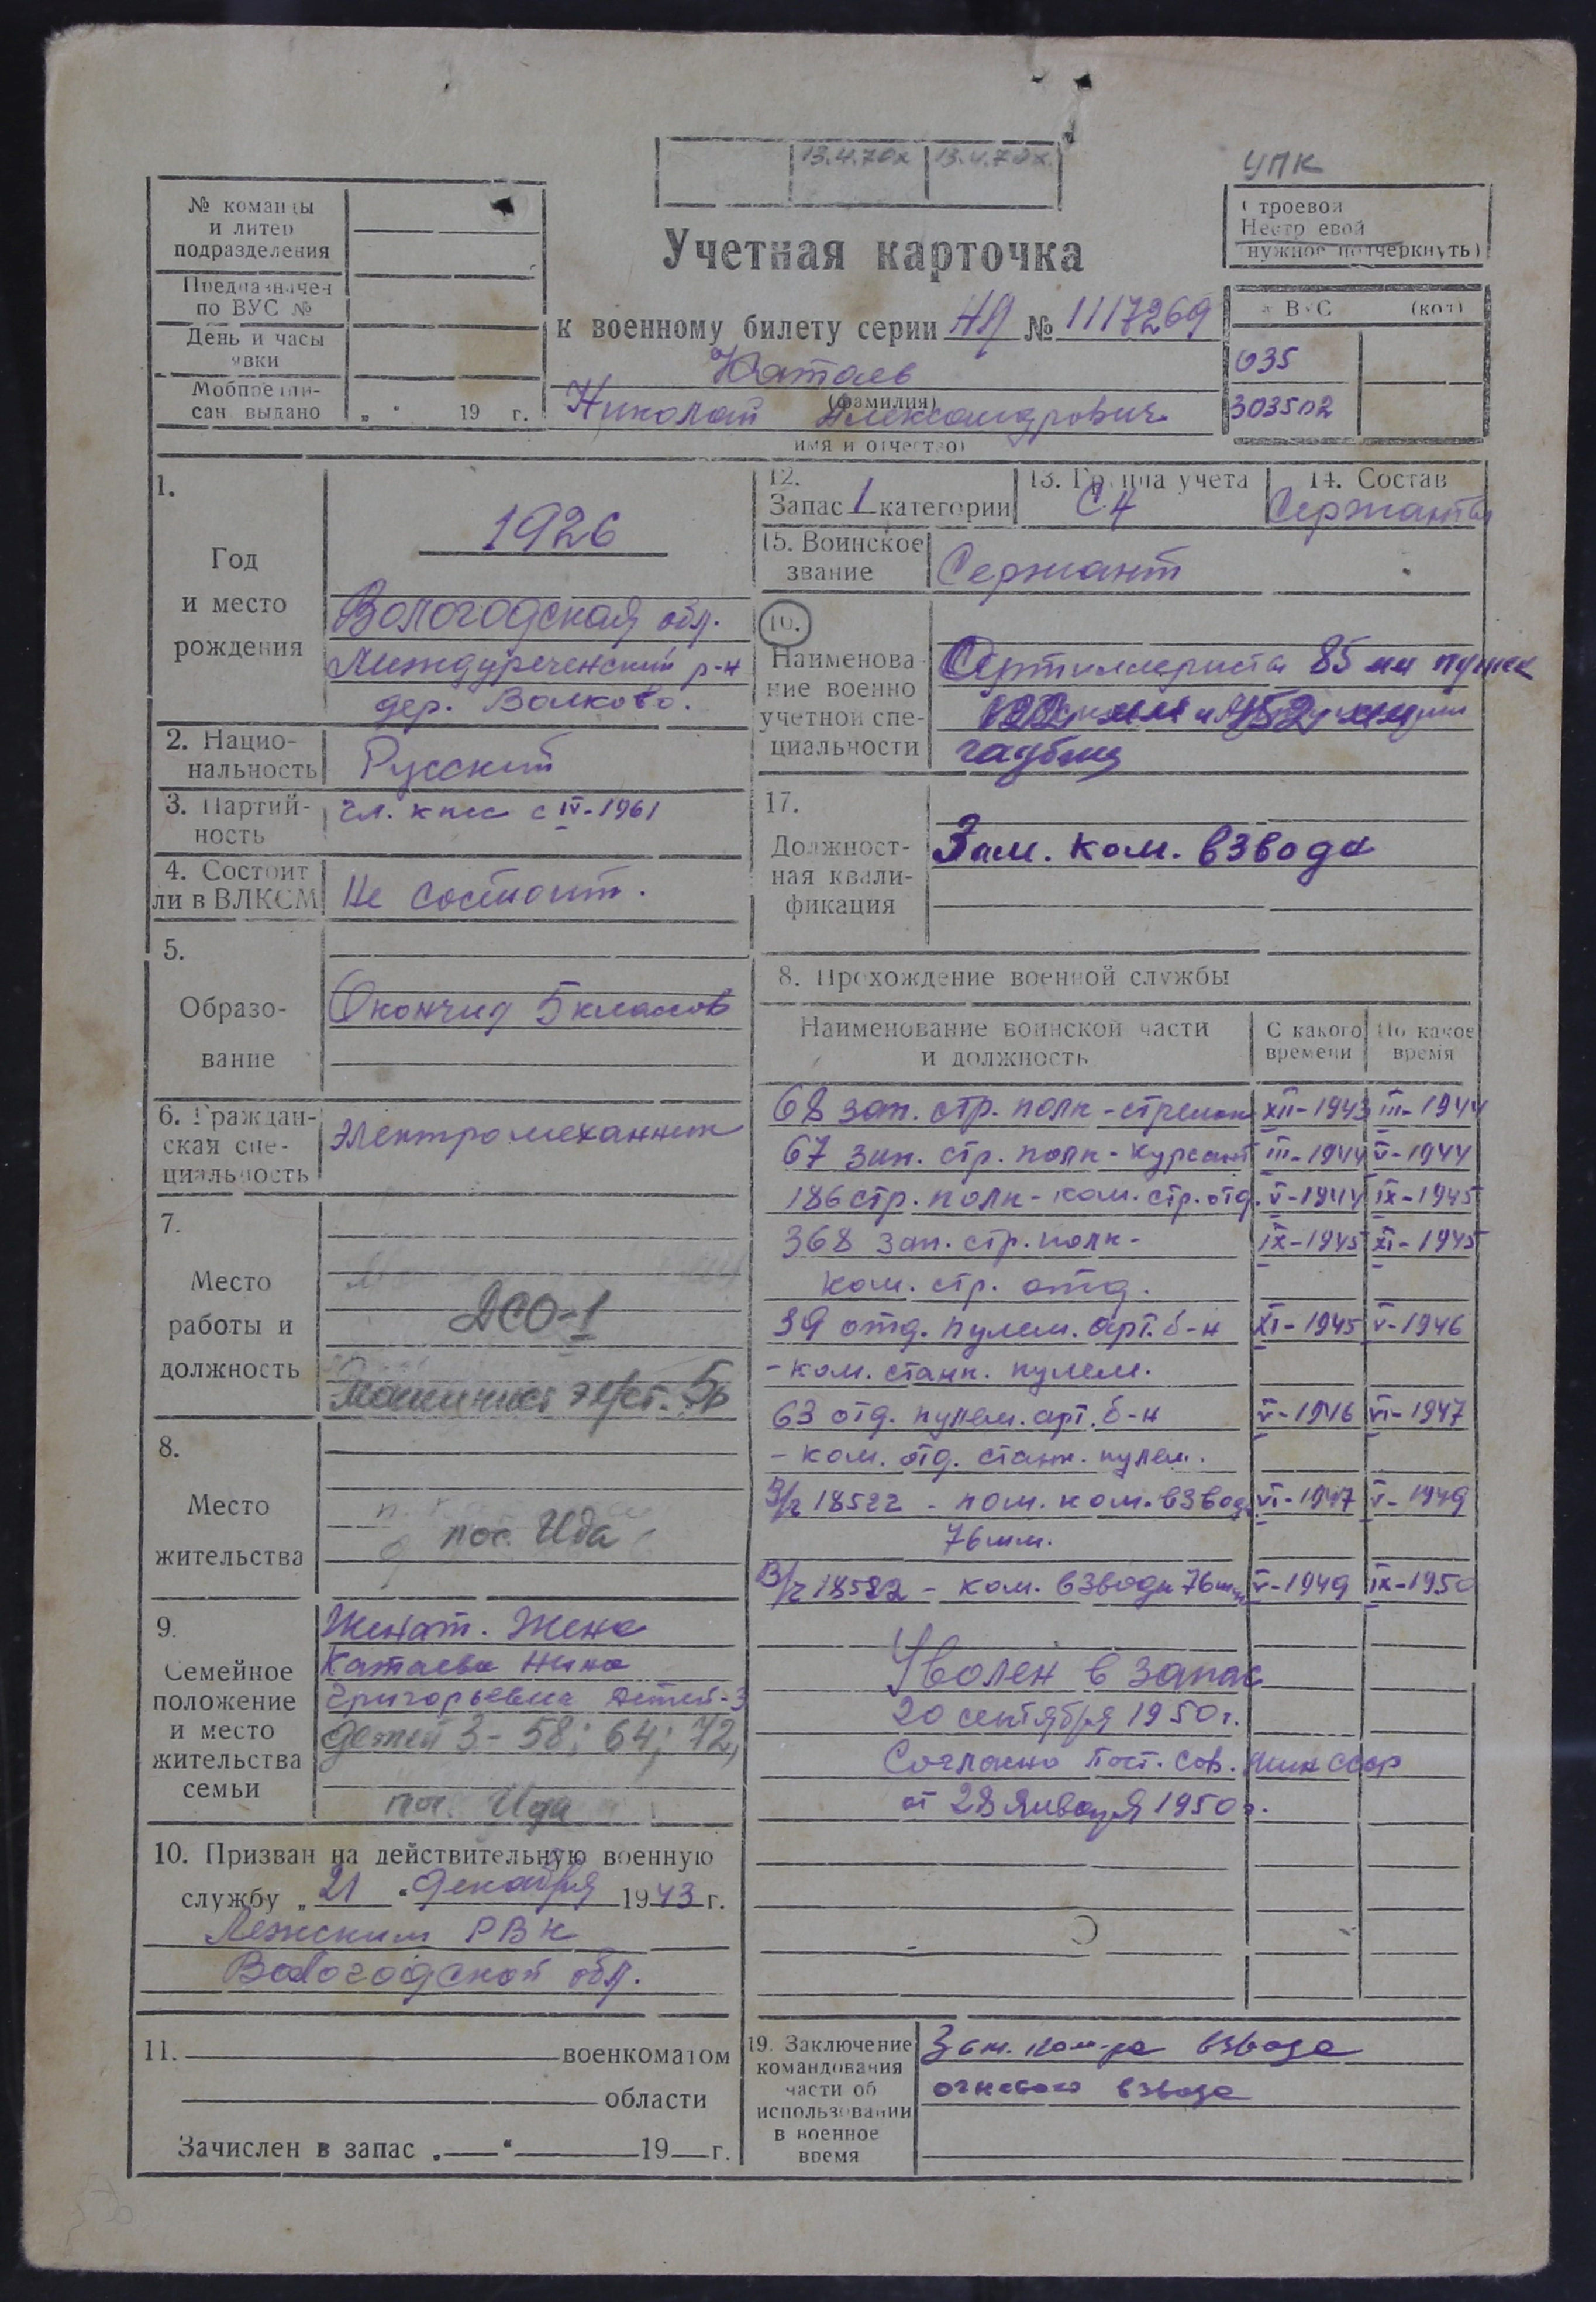 13.4.70х 13.4.70х
УПК
№ команды
и литер
подразделения
Предназначен
по ВУС №
День и часы
явки
Мобпредпи-
сан выдано „ “ 19 г.
Строевой
Нестроевой
нужное подчеркнуть)
Учетная карточка
к военному билету серии НЯ № 1117269
Катаев
(фамилия)
Николай Александрович
имя и отчество)
№ ВУС (код)
035
303502
1.
Год
и место
рождения
1926
Вологодская обл.
Междуреченский р-н
дер. Волково.
2. Нацио-
нальность
Русский
3. Партий-
ность
чл. кпсс с IV-1961
4. Состоит
ли в ВЛКСМ
Не состоит.
5.
Образо-
вание
Окончил 5 классов
6. Граждан-
ская спе-
циальность
Электромеханник
7.
Место
работы и
должность
ДСО-1
Машинист эл/ст. 5р
8.
Место
жительства
пос. Ида
9.
Семейное
положение
и место
жительства
семьи
Женат. Жена
Катаева Нина
Григорьевна детей-3
детей 3 - 58; 64; 72,
пос. Ида
10. Призван на действительную военную
службу „21“ декабря 1943 г.
Лежским РВК
Вологодской обл.
11. военкоматом
области
Зачислен в запас „ “ 19 г.
12.
Запас 1 категории
13. Группа учета
СА
14. Состав
Сержанты
15. Воинское
звание
Сержант
16.
Наименова-
ние военно
учетной спе-
циальности
Артиллериста 85 мм пушек
122 мм и 152 мм
гаубиц
17.
Должност-
ная квали-
фикация
Зам. ком. взвода
8. Прохождение военной службы
Наименование воинской части
и должность
С какого
времени
По какое
время
68 зап. стр. полк - стрелок XII-1943 III-1944
67 зап. стр. полк - курсант III-1944 V-1944
186 стр. полк - ком. стр. отд. V-1944 IX-1945
368 зап. стр. полк - IX-1945 XI-1945
ком. стр. отд.
39 отд. пулем. арт. б-н XI-1945 V-1946
- ком. станк. пулем.
63 отд. пулем. арт. б-н V-1946 VI-1947
- ком. отд. станк. пулем.
В/ч 18522 - пом. ком. взвода VI-1947 V-1949
76 мм.
В/ч 18522 - ком. взвода 76 мм V-1949 IX-1950
Уволен в запас
20 сентября 1950 г.
Согласно Пост. Сов. Мин СССР
от 28 января 1950 г.
19. Заключение
командования
части об
использовании
в военное
время
Зам. ком-ра взвода
огневого взвода